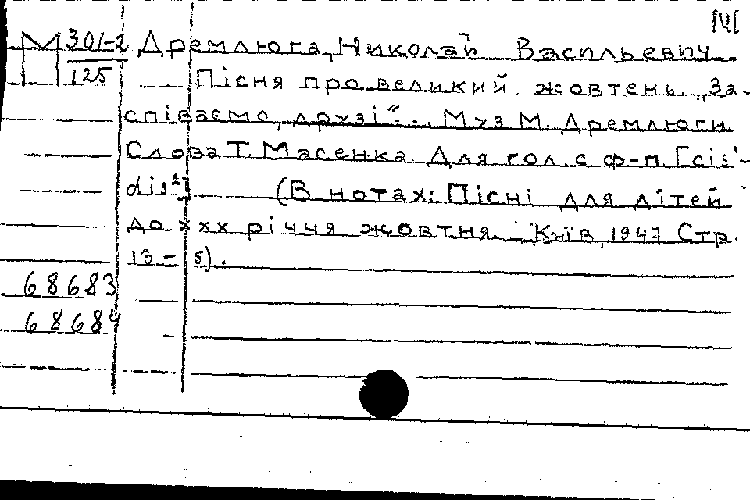 [Ч[
М 301-2 Дремлюга, Николай Васильевич
125 Пісня про великий жовтень. „За-
співаємо, друзі“... Муз М. Дремлюги
Слова Т. Масенка. Для гол. с ф-п. [cis'-
dis²] (В нотах: Пісні для дітей
до ххх річчя жовтня. Київ, 1947 Стр.
13 - 5).
68683
68684